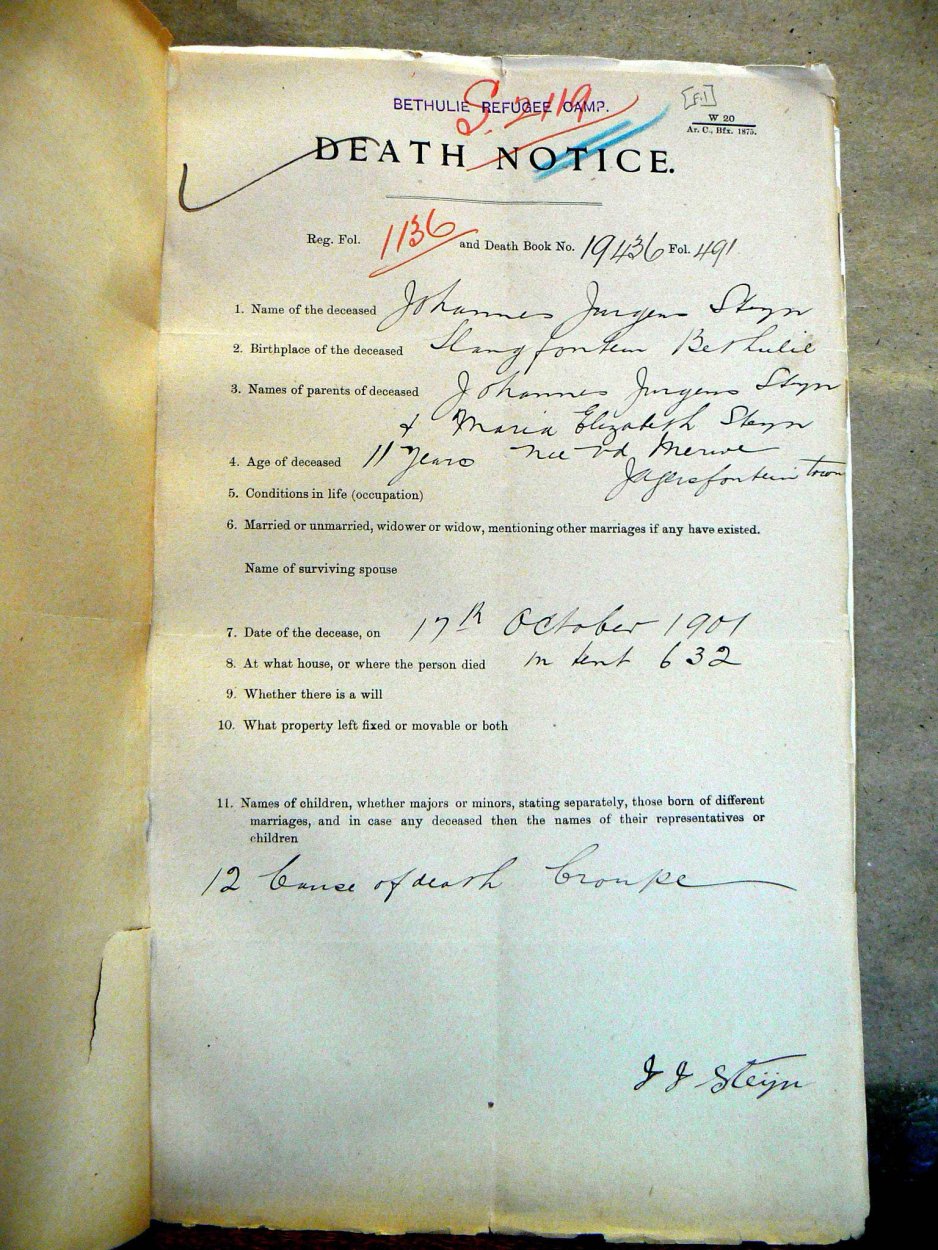 BETHULIE REFUGEE CAMP.
S. 2119
[F.1]
W 20
Ar. C., Bfx. 1875.
DEATH NOTICE.
Reg. Fol. 1136 and Death Book No. 19436 Fol. 491
1. Name of the deceased Johannes Jurgens Steyn
2. Birthplace of the deceased Slangfontein Bethulie
3. Names of parents of deceased Johannes Jurgens Steyn
+ Maria Elizabeth Steyn
4. Age of deceased 11 years nee vd Merwe
Jagersfontein town
5. Conditions in life (occupation)
6. Married or unmarried, widower or widow, mentioning other marriages if any have existed.
Name of surviving spouse
7. Date of the decease, on 17th October 1901
8. At what house, or where the person died in tent 632
9. Whether there is a will
10. What property left fixed or movable or both
11. Names of children, whether majors or minors, stating separately, those born of different
marriages, and in case any deceased then the names of their representatives or
children
12 Cause of death Croupe
J J Steijn